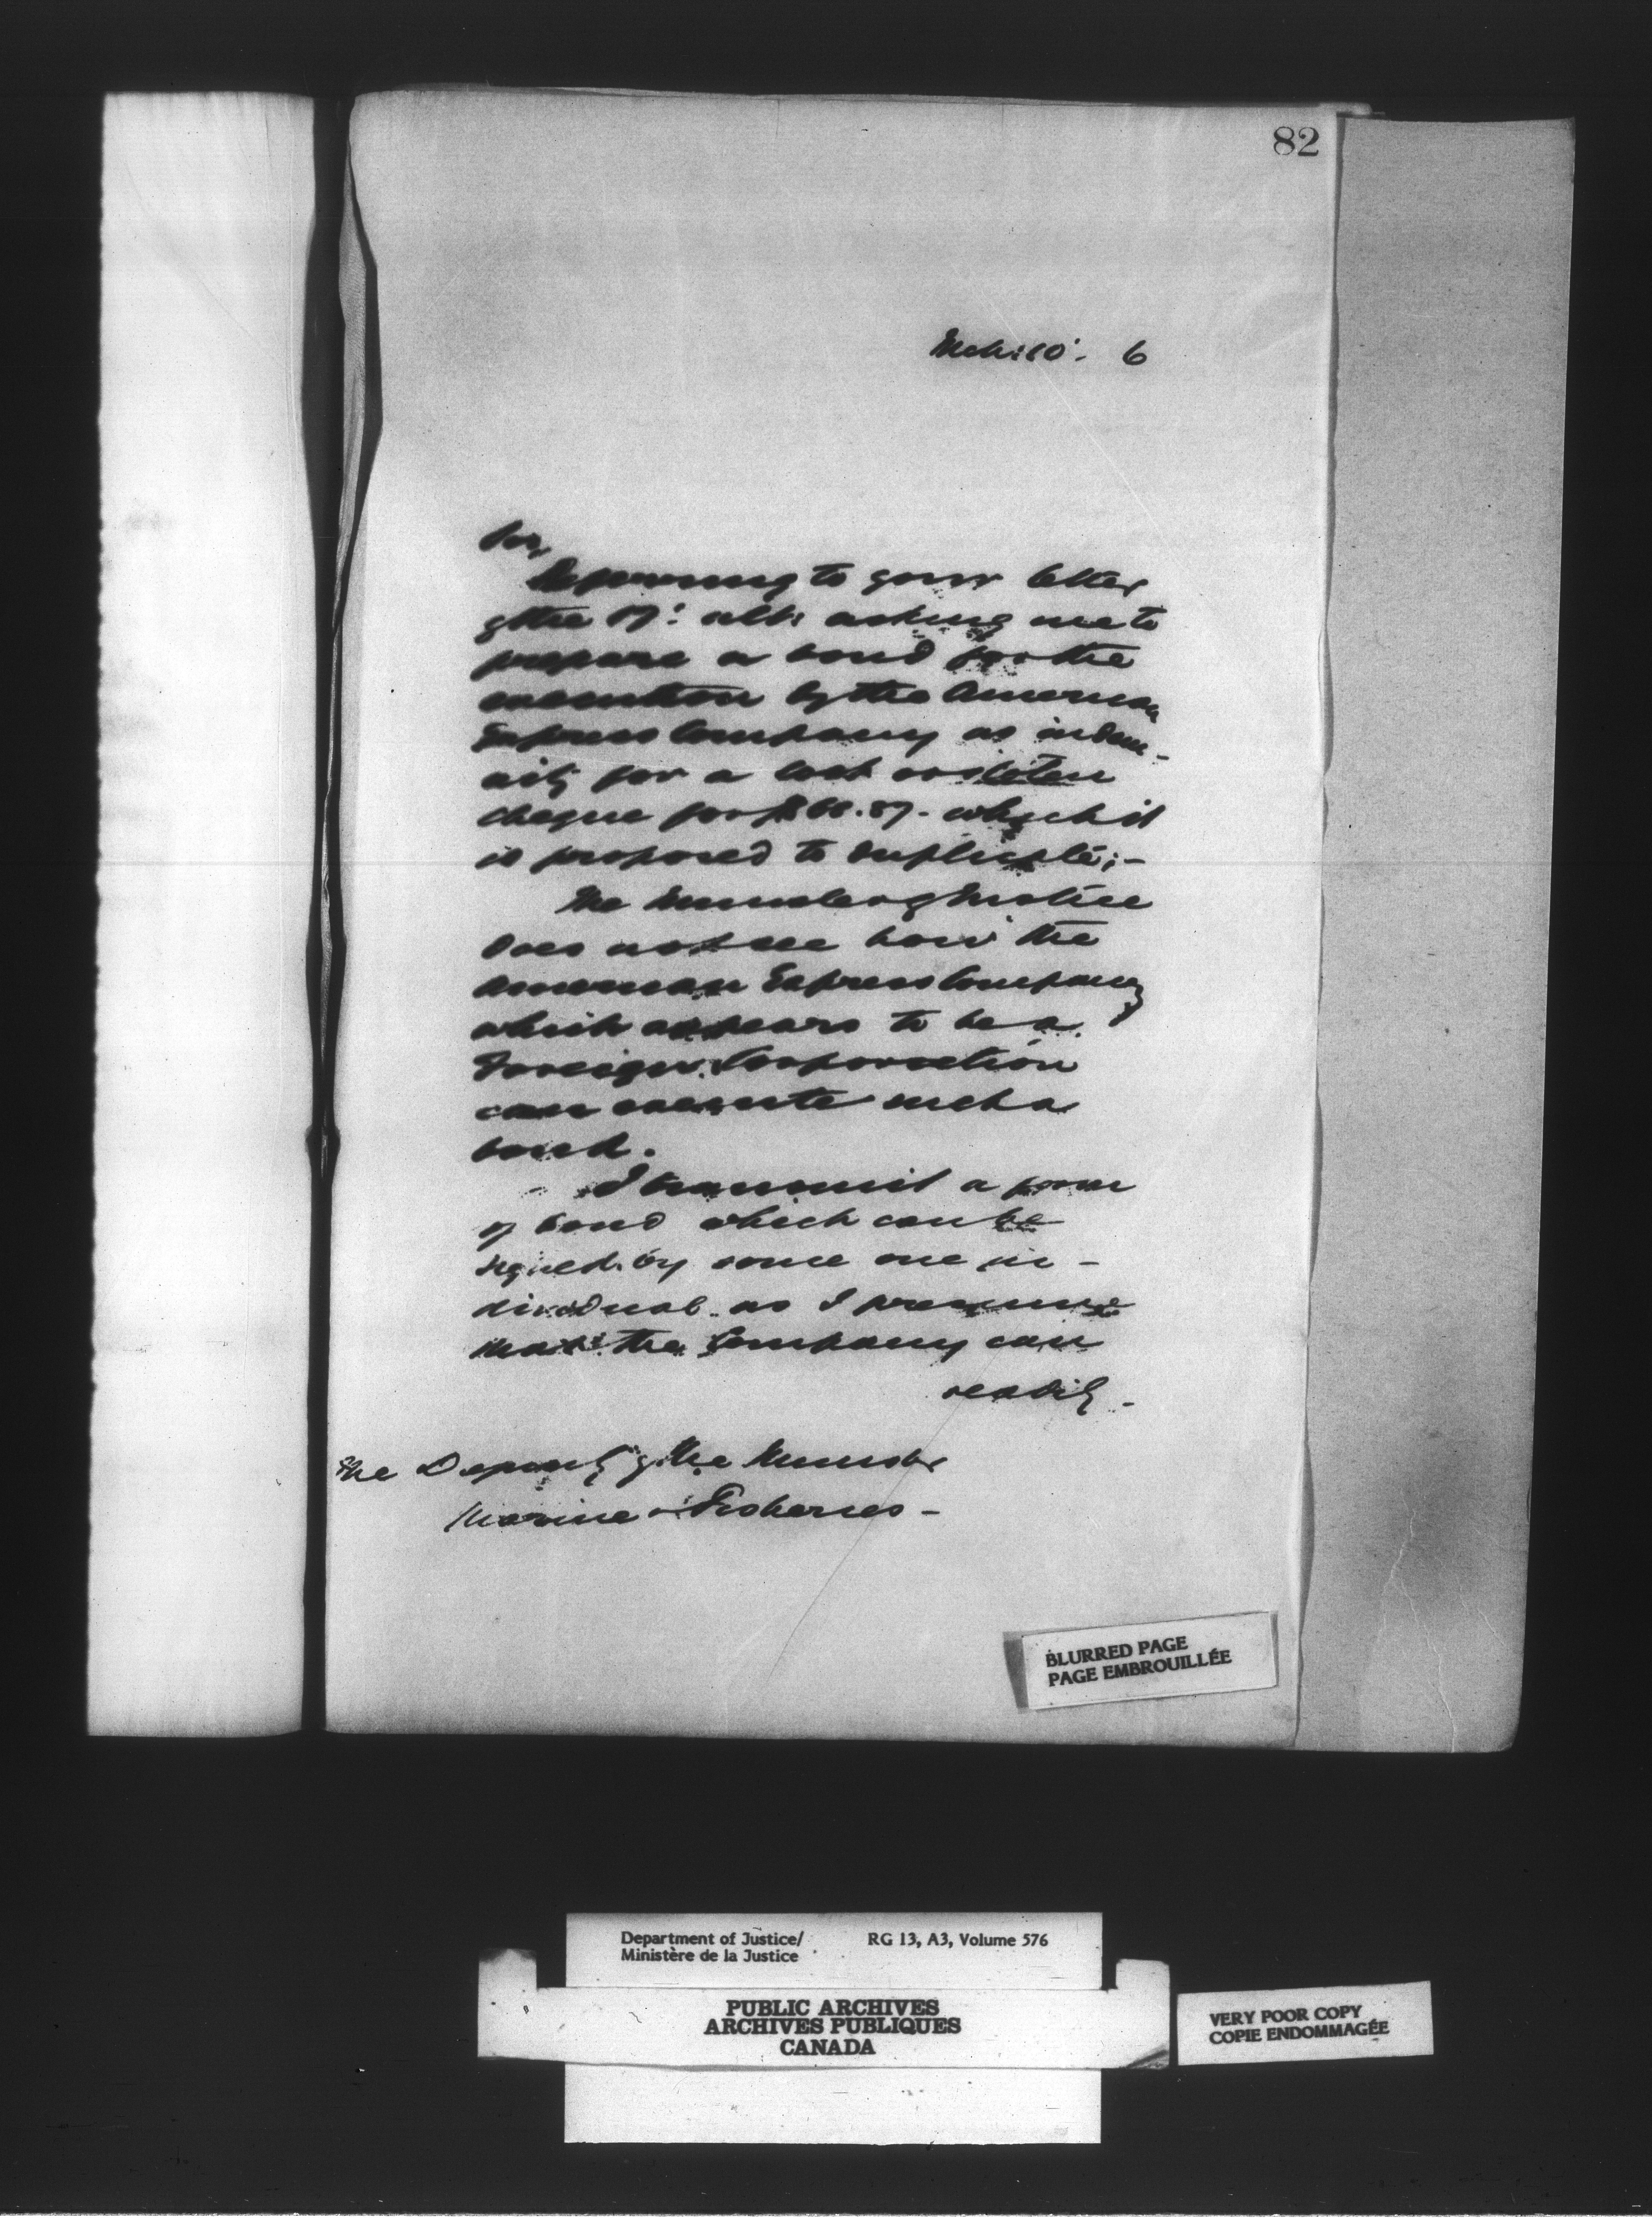 82
Mch: 10'. 6
Sir,
Referring to your letter
of the 17': ult: asking me to
prepare a bond for the
execution by the American
Express Company as indem-
nity for a lost or stolen
cheque for which it
is proposed to duplicate;-
The Minister of Justice
does not see how the
American Express Company
which appears to be a
Foreign Corporation
can execute such a
bond.
I transmit a form
of bond which can be
signed by some one in-
dividual as I presume
that the Company can
readily -
The Deputy of the Minister
Marine & Fisheries -
BLURRED PAGE
PAGE EMBROUILLÉE
Department of Justice/ RG 13, A3, Volume 576
Ministère de la Justice
PUBLIC ARCHIVES
ARCHIVES PUBLIQUES
CANADA
VERY POOR COPY
COPIE ENDOMMAGÉE